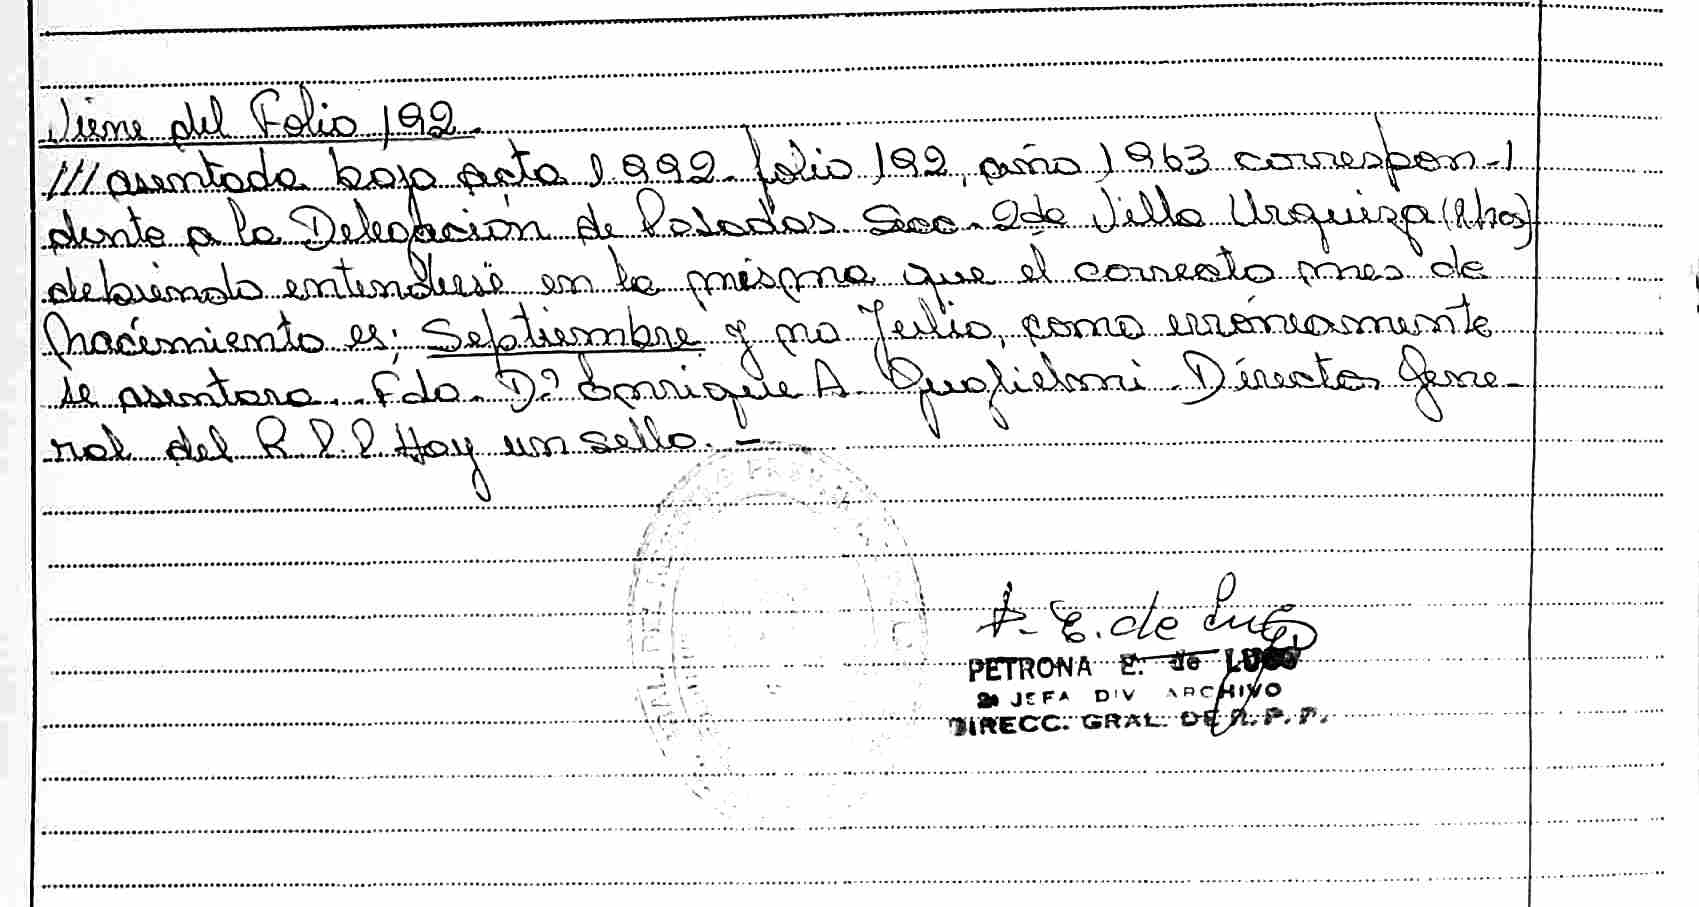 Viene del Folio 192.
/// asentada bajo acta 1992. folio 192, año 1963 correspon-
diente a la Delegación de Posadas Secc. 2da Villa Urquiza
debiendo entenderse en la misma que el correcto mes de
nacimiento es; Septiembre y no Julio, como erróneamente
se asentara. Fdo. Dº Enrique A. Guglielmi. Director Gene-
ral del R.P.P Hay un sello. -
P. E. de Lugo
PETRONA E. de LUGO
JEFA DIV ARCHIVO
DIRECC. GRAL. DE R. P. P.